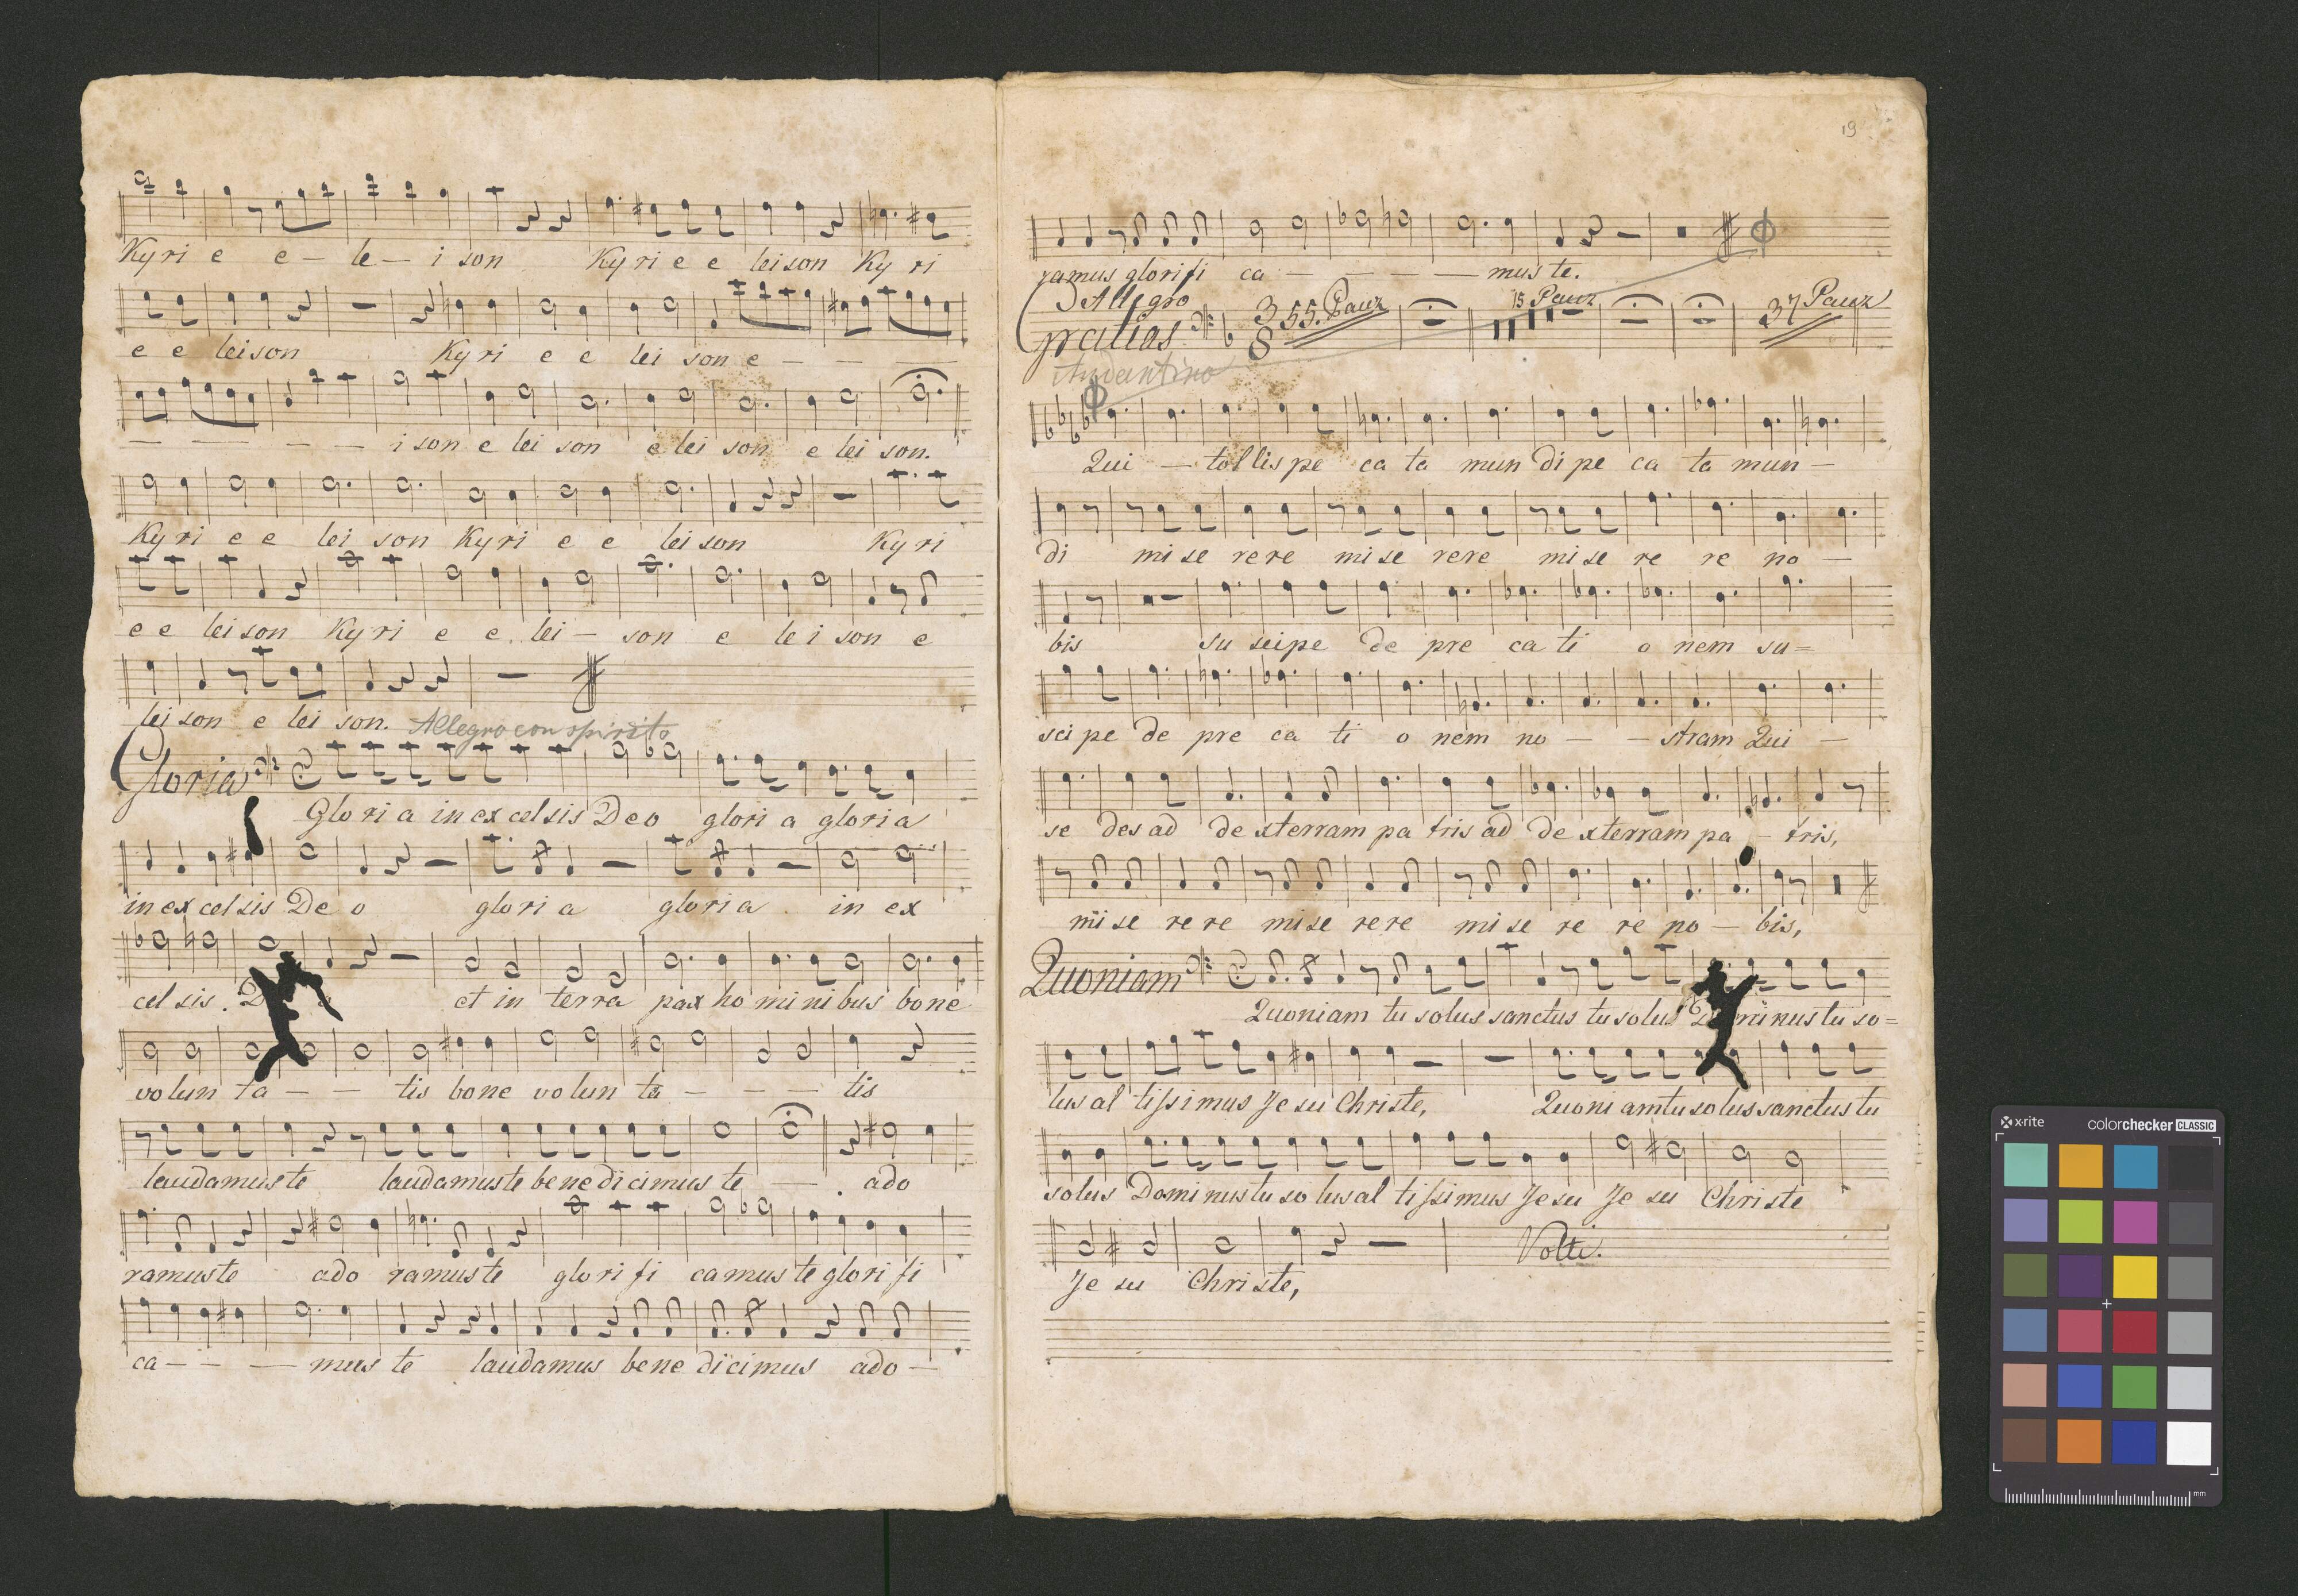 Kyri e e – le – i son Kyri e e leison Ky ri
e e leison Kyri e e lei son e – – –
– – – – i son e lei son e lei son e lei son.
Kyri e e lei son Kyri e e lei son Kyri
e e leison Kyri e e lei – son e lei son e
leison e lei son. Allegro con spirito
Gloria
Glo ri a in ex celsis Deo glori a gloria
in ex celsis De o glori a gloria in ex
cel sis. et in terra pax ho mi ni bus bone
volun ta – – tis bone volun ta – – – tis
laudamus te laudamus te bene di cimus te – . ado
ramus te ado ramus te glori fi camus te glori fi
ca – – – mus te laudamus bene dicimus ado –
19
ramus glorifi ca – – – – mus te.
Allegro
gratias 3 8 55. Pauz 15 Pauz 37 Pauz
Andantino
Qui – tollis pe ca ta mun di pe ca ta mun –
di mi se re re mi se rere mi se re re no –
bis su scipe de pre ca ti o nem su =
sci pe de pre ca ti o nem no – – stram Qui –
se des ad de xterram pa tris ad de xterram pa – tris,
mi se re re mi se re re mi se re re no – bis,
Quoniam
Quoniam tu solus sanctus tu solus minus tu so =
lus al tissimus Jesu Christe, Quoni am tu solus sanctus tu
solus Domi nus tu so lus al tissimus Jesu Je su Christe
Volti.
Je su Christe,
x-rite colorchecker CLASSIC
mm